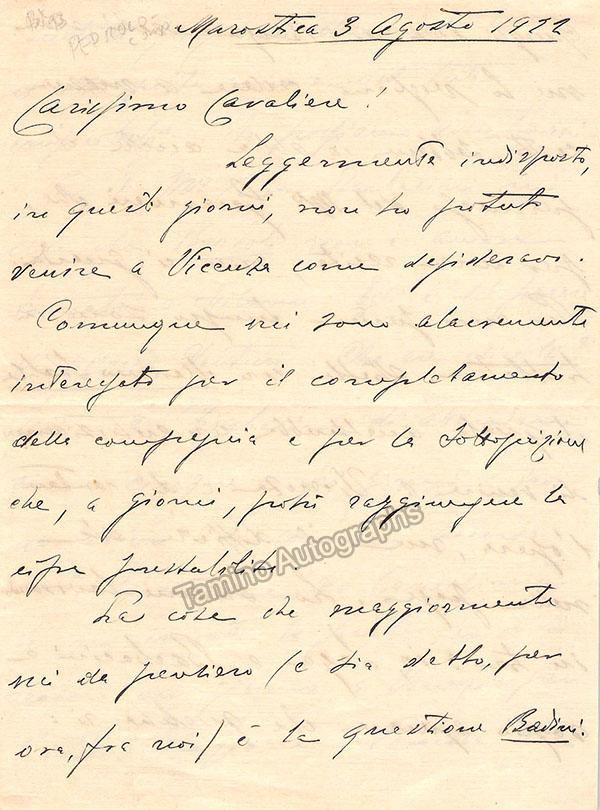 PEDROLLO
Marostica 3 Agosto 1922
Carissimo Cavaliere!
Leggermente indisposto,
in questi giorni, non ho potuto
venire a Vicenza come desideravo.
Comunque mi sono alacremente
interessato per il completamento
della compagnia e per la sottoscrizione
che, a giorni, potrà raggiungere la
cifra prestabilita.
La cosa che maggiormente
mi dà pensiero (e sia detto, per
ora, fra noi) è la questione Badini.
Tamino Autographs